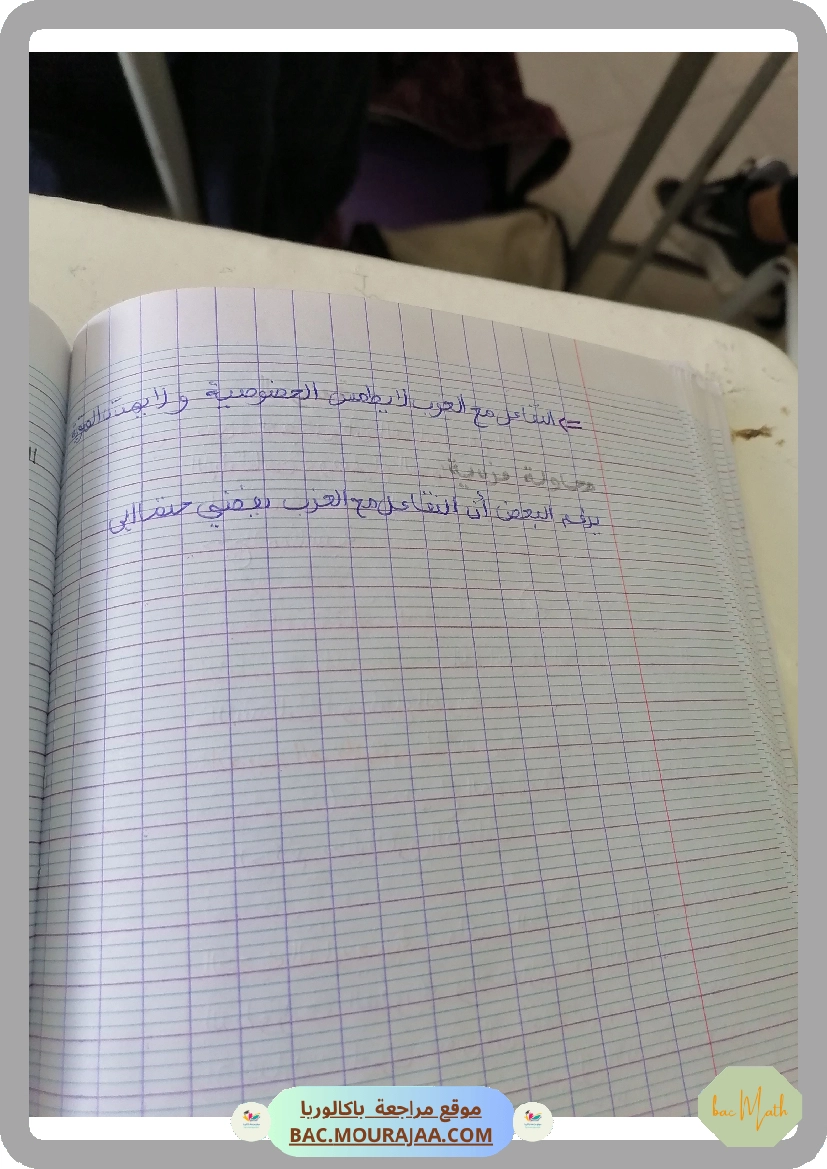 => التفاعل مع الغرب لا يطمس الخصوصية ولا يهدد الهوية
محاولة فردية
يزعم البعض أن التفاعل مع الغرب يفضي حتما إلى
موقع مراجعة باكالوريا
BAC.MOURAJAA.COM
bac Math